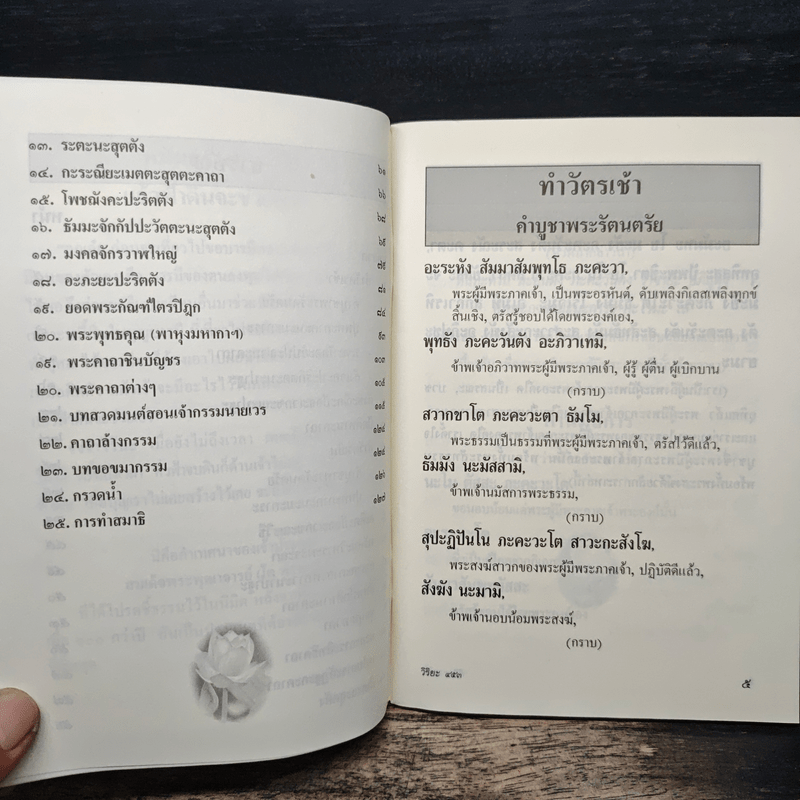 ๑๓. ระตะนะสุตตัง
๑๔. กะระณียะเมตตะสุตตะคาถา ๖๑
๑๕. โพชฌังคะปะริตตัง ๖๖
๑๖. ธัมมะจักกัปปะวัตตะนะสุตตัง ๖๘
๑๗. มงคลจักรวาพใหญ่ ๖๙
๑๘. อะภะยะปะริตตัง ๗๙
๑๙. ยอดพระกัณฑ์ไตรปิฎก ๘๑
๒๐. พระพุทธคุณ (พาหุงมหากาฯ) ๘๔
๑๙. พระคาถาชินบัญชร ๙๓
๒๐. พระคาถาต่างๆ ๑๐๓
๒๑. บทสวดมนต์สอนเจ้ากรรมนายเวร
๒๒. คาถาล้างกรรม
๒๓. บทขอขมากรรม ๑๒๔
๒๔. กรวดน้ำ ๑๒๖
๒๕. การทำสมาธิ ๑๒๘
ทำวัตรเช้า
คำบูชาพระรัตนตรัย
อะระหัง สัมมาสัมพุทโธ ภะคะวา,
พระผู้มีพระภาคเจ้า, เป็นพระอรหันต์, ดับเพลิงกิเลสเพลิงทุกข์
สิ้นเชิง, ตรัสรู้ชอบได้โดยพระองค์เอง,
พุทธัง ภะคะวันตัง อะภิวาเทมิ,
ข้าพเจ้าอภิวาทพระผู้มีพระภาคเจ้า, ผู้รู้ ผู้ตื่น ผู้เบิกบาน
(กราบ)
สวากขาโต ภะคะวะตา ธัมโม,
พระธรรมเป็นธรรมที่พระผู้มีพระภาคเจ้า, ตรัสไว้ดีแล้ว,
ธัมมัง นะมัสสามิ,
ข้าพเจ้านมัสการพระธรรม,
(กราบ)
สุปะฏิปันโน ภะคะวะโต สาวะกะสังโฆ,
พระสงฆ์สาวกของพระผู้มีพระภาคเจ้า, ปฏิบัติดีแล้ว,
สังฆัง นะมามิ,
ข้าพเจ้านอบน้อมพระสงฆ์,
(กราบ)
วิริยะ ๔๕๓
๕